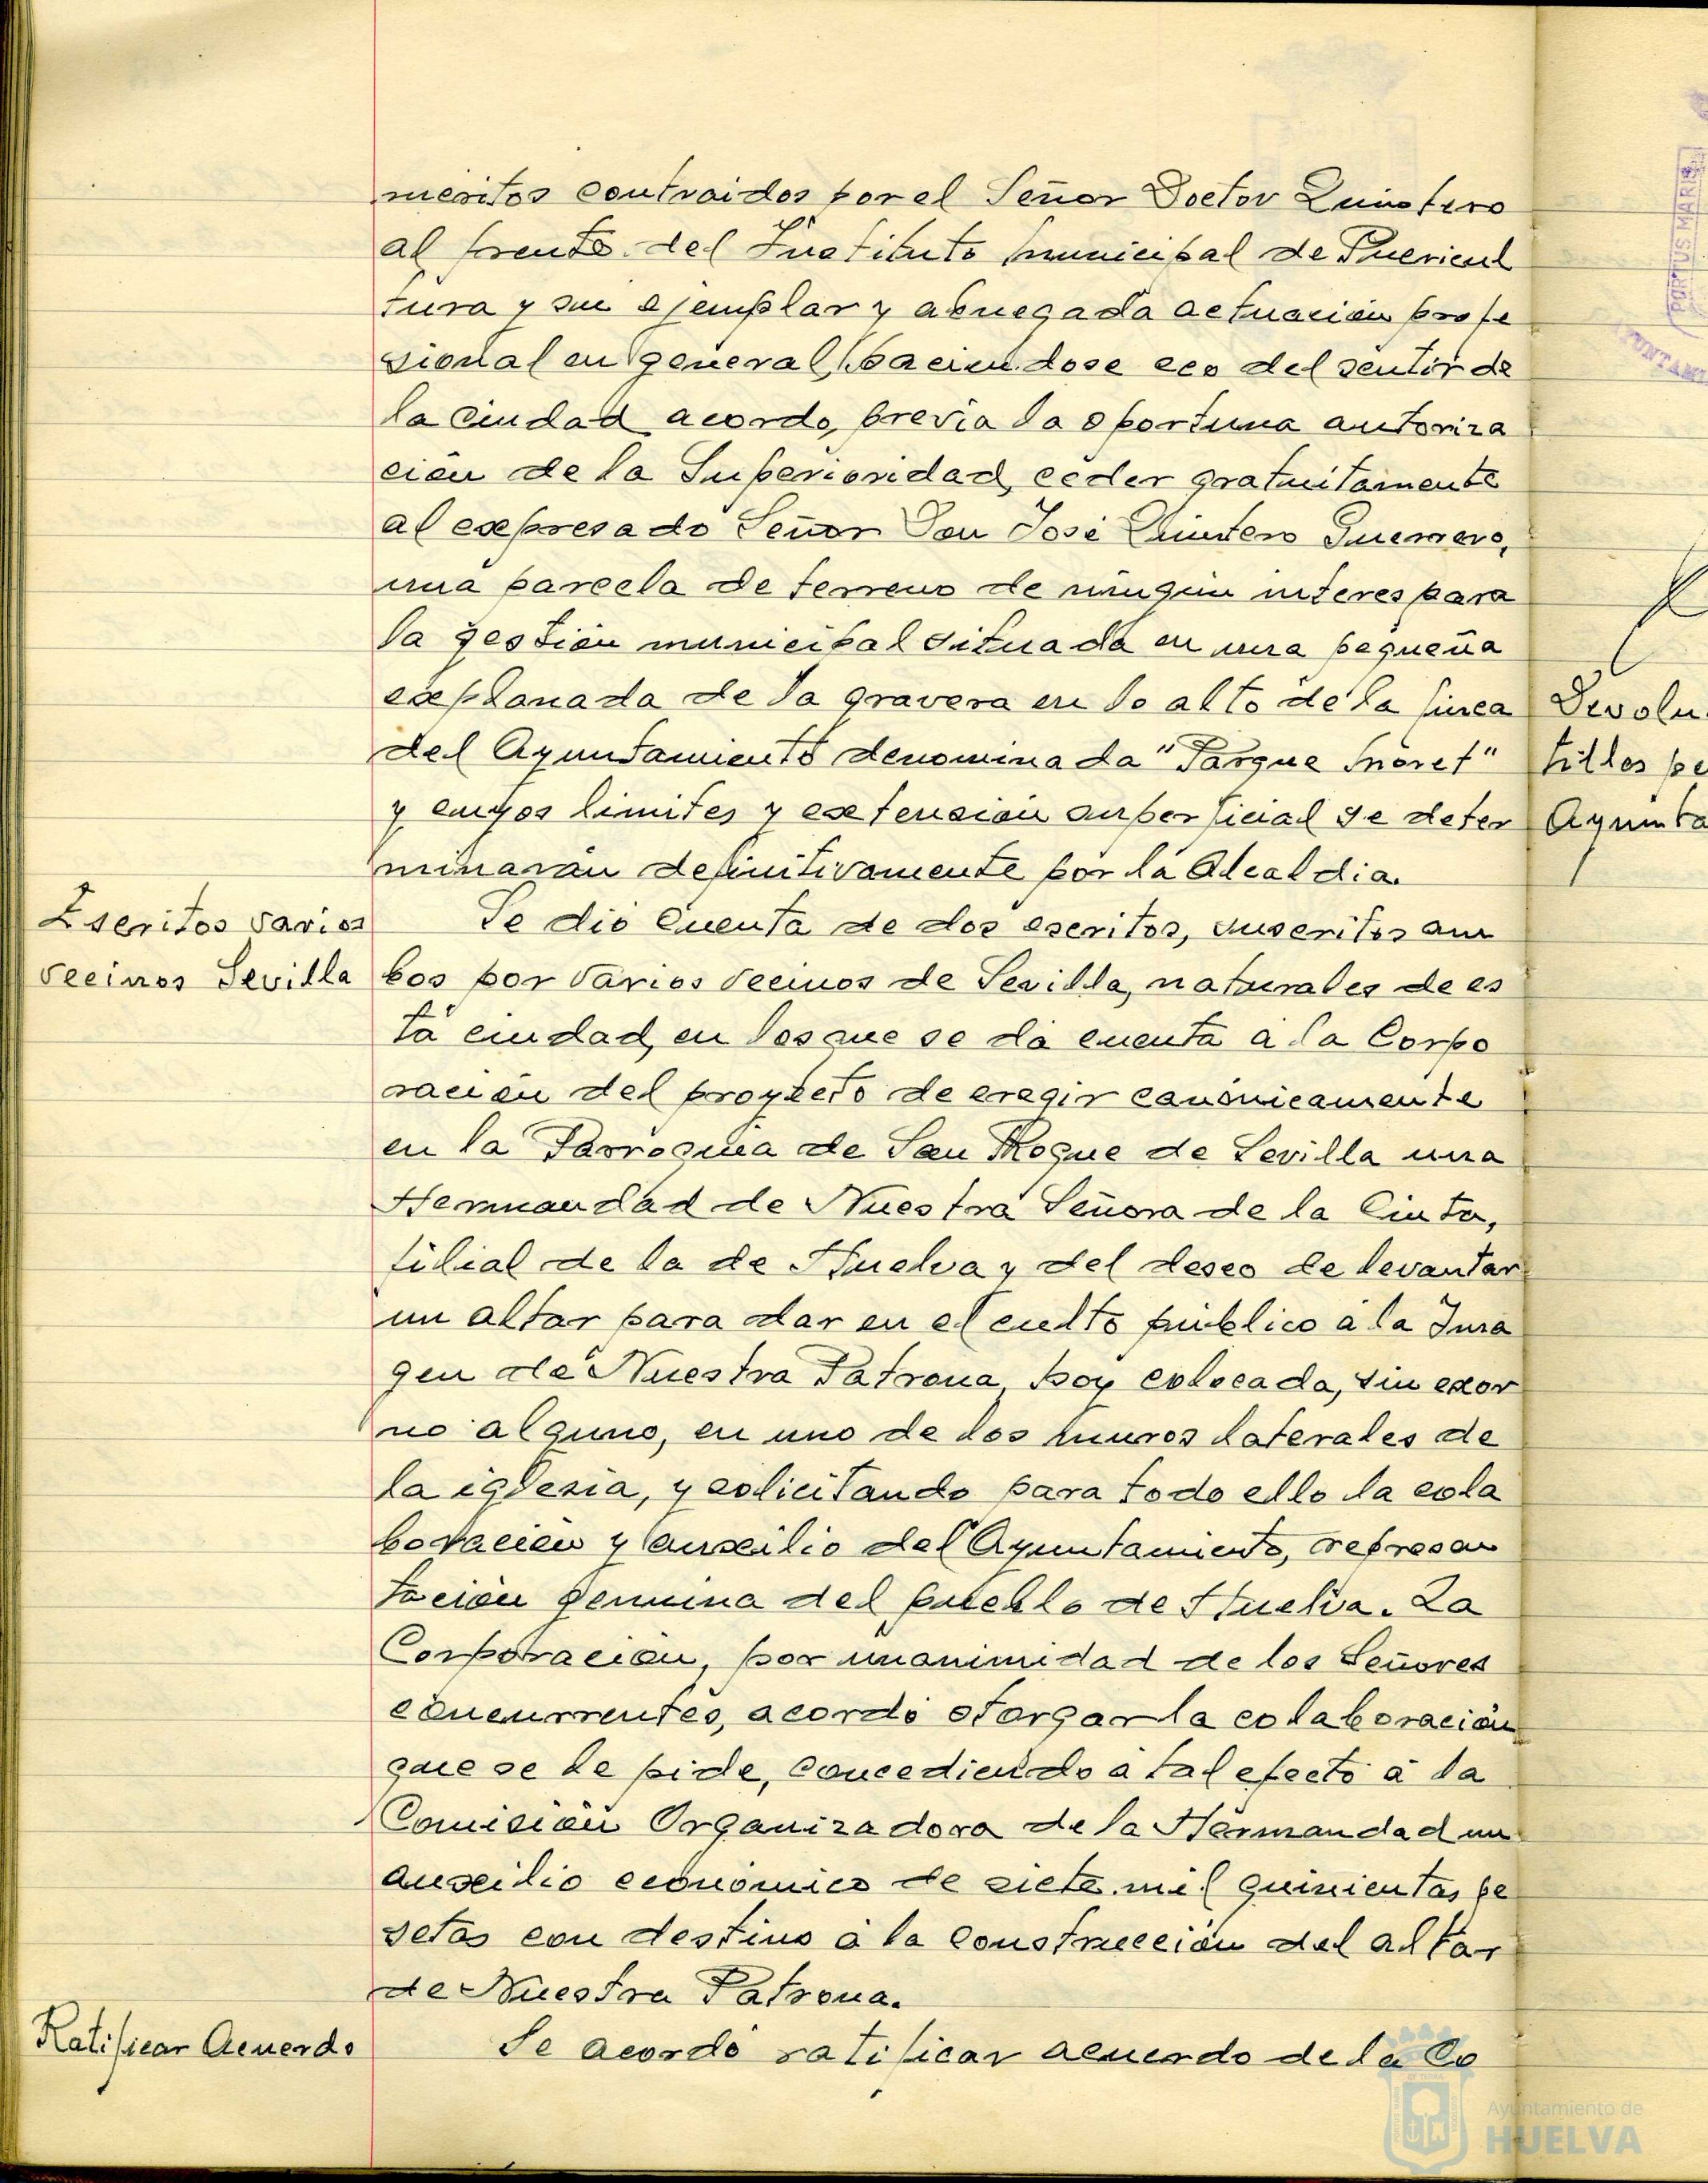 meritos contraidos por el Señor Doctor Quintero
al frente del Instituto municipal de Puericul
tura y su ejemplar y abnegada actuación profe
sional en general, haciendose eco del sentir de
la Ciudad acordo, previa la oportuna autoriza
ción de la Superioridad, ceder gratuitamente
al expresado Señor Don José Quintero Guerrero,
una parcela de terreno de ningún interes para
la gestión municipal situada en una pequeña
explanada de la gravera en lo alto de la finca
del Ayuntamiento denominada "Parque Moret"
y cuyos limites y extensión superficial se deter
minarán definitivamente por la Alcaldia.
Escritos varios
vecinos Sevilla
Se dió Cuenta de dos escritos, suscritos am
bos por varios vecinos de Sevilla, naturales de es
ta ciudad, en los que se dá cuenta á la Corpo
ración del proyecto de eregir canónicamente
en la Parroquia de San Roque de Sevilla una
Hermandad de Nuestra Señora de la Cinta,
filial de la de Huelva y del deseo de levantar
un altar para dar en el culto público á la Ima
gen de Nuestra Patrona, hoy colocada, sin exor
no alguno, en uno de los muros laterales de
la iglesia, y solicitando para todo ello la cola
boración y auxilio del Ayuntamiento, represen
tación genuina del pueblo de Huelva. La
Corporación, por unanimidad de los Señores
concurrentes, acordó otorgar la colaboración
que se le pide, concediendo á tal efecto á la
Comisión Organizadora de la Hermandad un
auxilio económico de siete mil quinientas pe
setas con destino á la Construcción del altar
de Nuestra Patrona.
Ratificar Acuerdo
Se acordó ratificar acuerdo de la Co
Devolu
tillos pe
Ayunta
PORTUS MARIS
AYUNTAMI
Ayuntamiento de
HUELVA